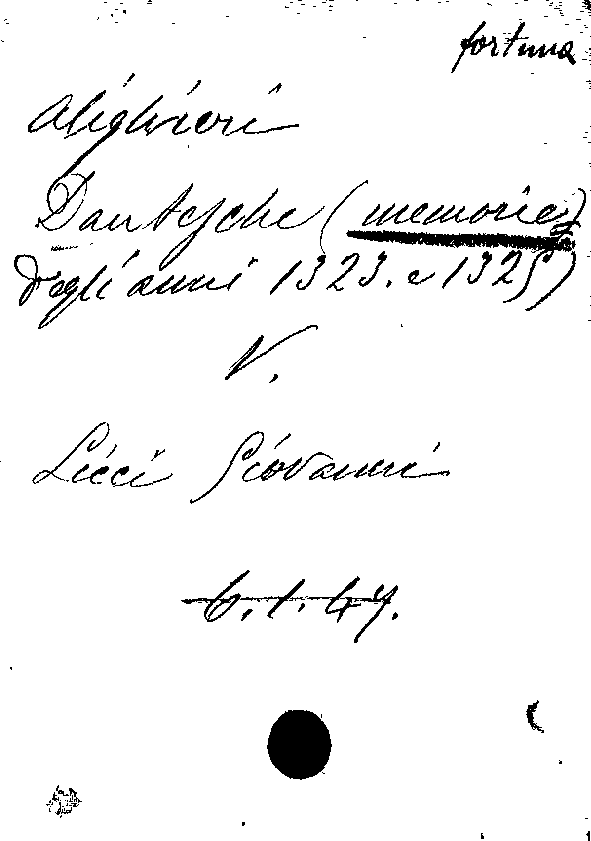 fortuna
Alighieri
Dantesche (memorie)
degli anni 1323. e 1325)
V.
Licci Giovanni
6.1.47.